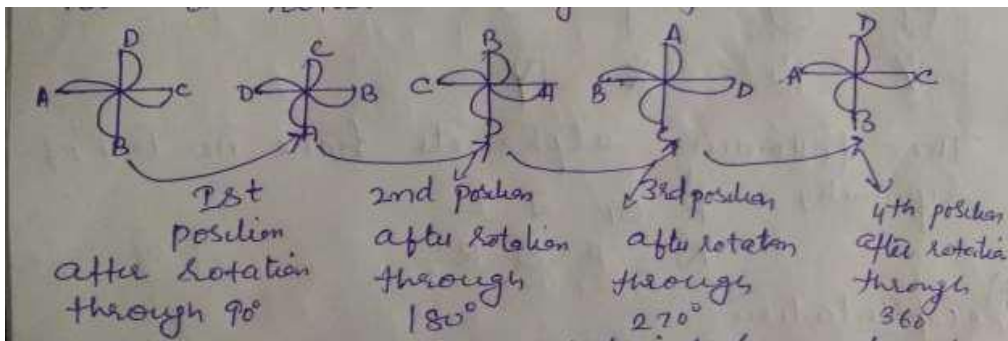 D
A
C
B
C
D
B
A
B
C
A
D
B
D
C
D
A
C
B
Ist
position
after rotation
through 90°
2nd position
after rotation
through
180°
3rd position
after rotation
through
270°
4th position
after rotation
through
360°